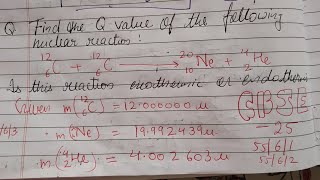 Q Find the Q value of the following
nuclear reaction:
12 6 C + 12 6 C → 20 10 Ne + 4 2 He
Is this reaction exothermic or endotherm
Given m(12 6 C) = 12.000000 u CBSE
m(20 10 Ne) = 19.992439 u - 25
m(4 2 He) = 4.002603 u 55/6/1
55/6/2